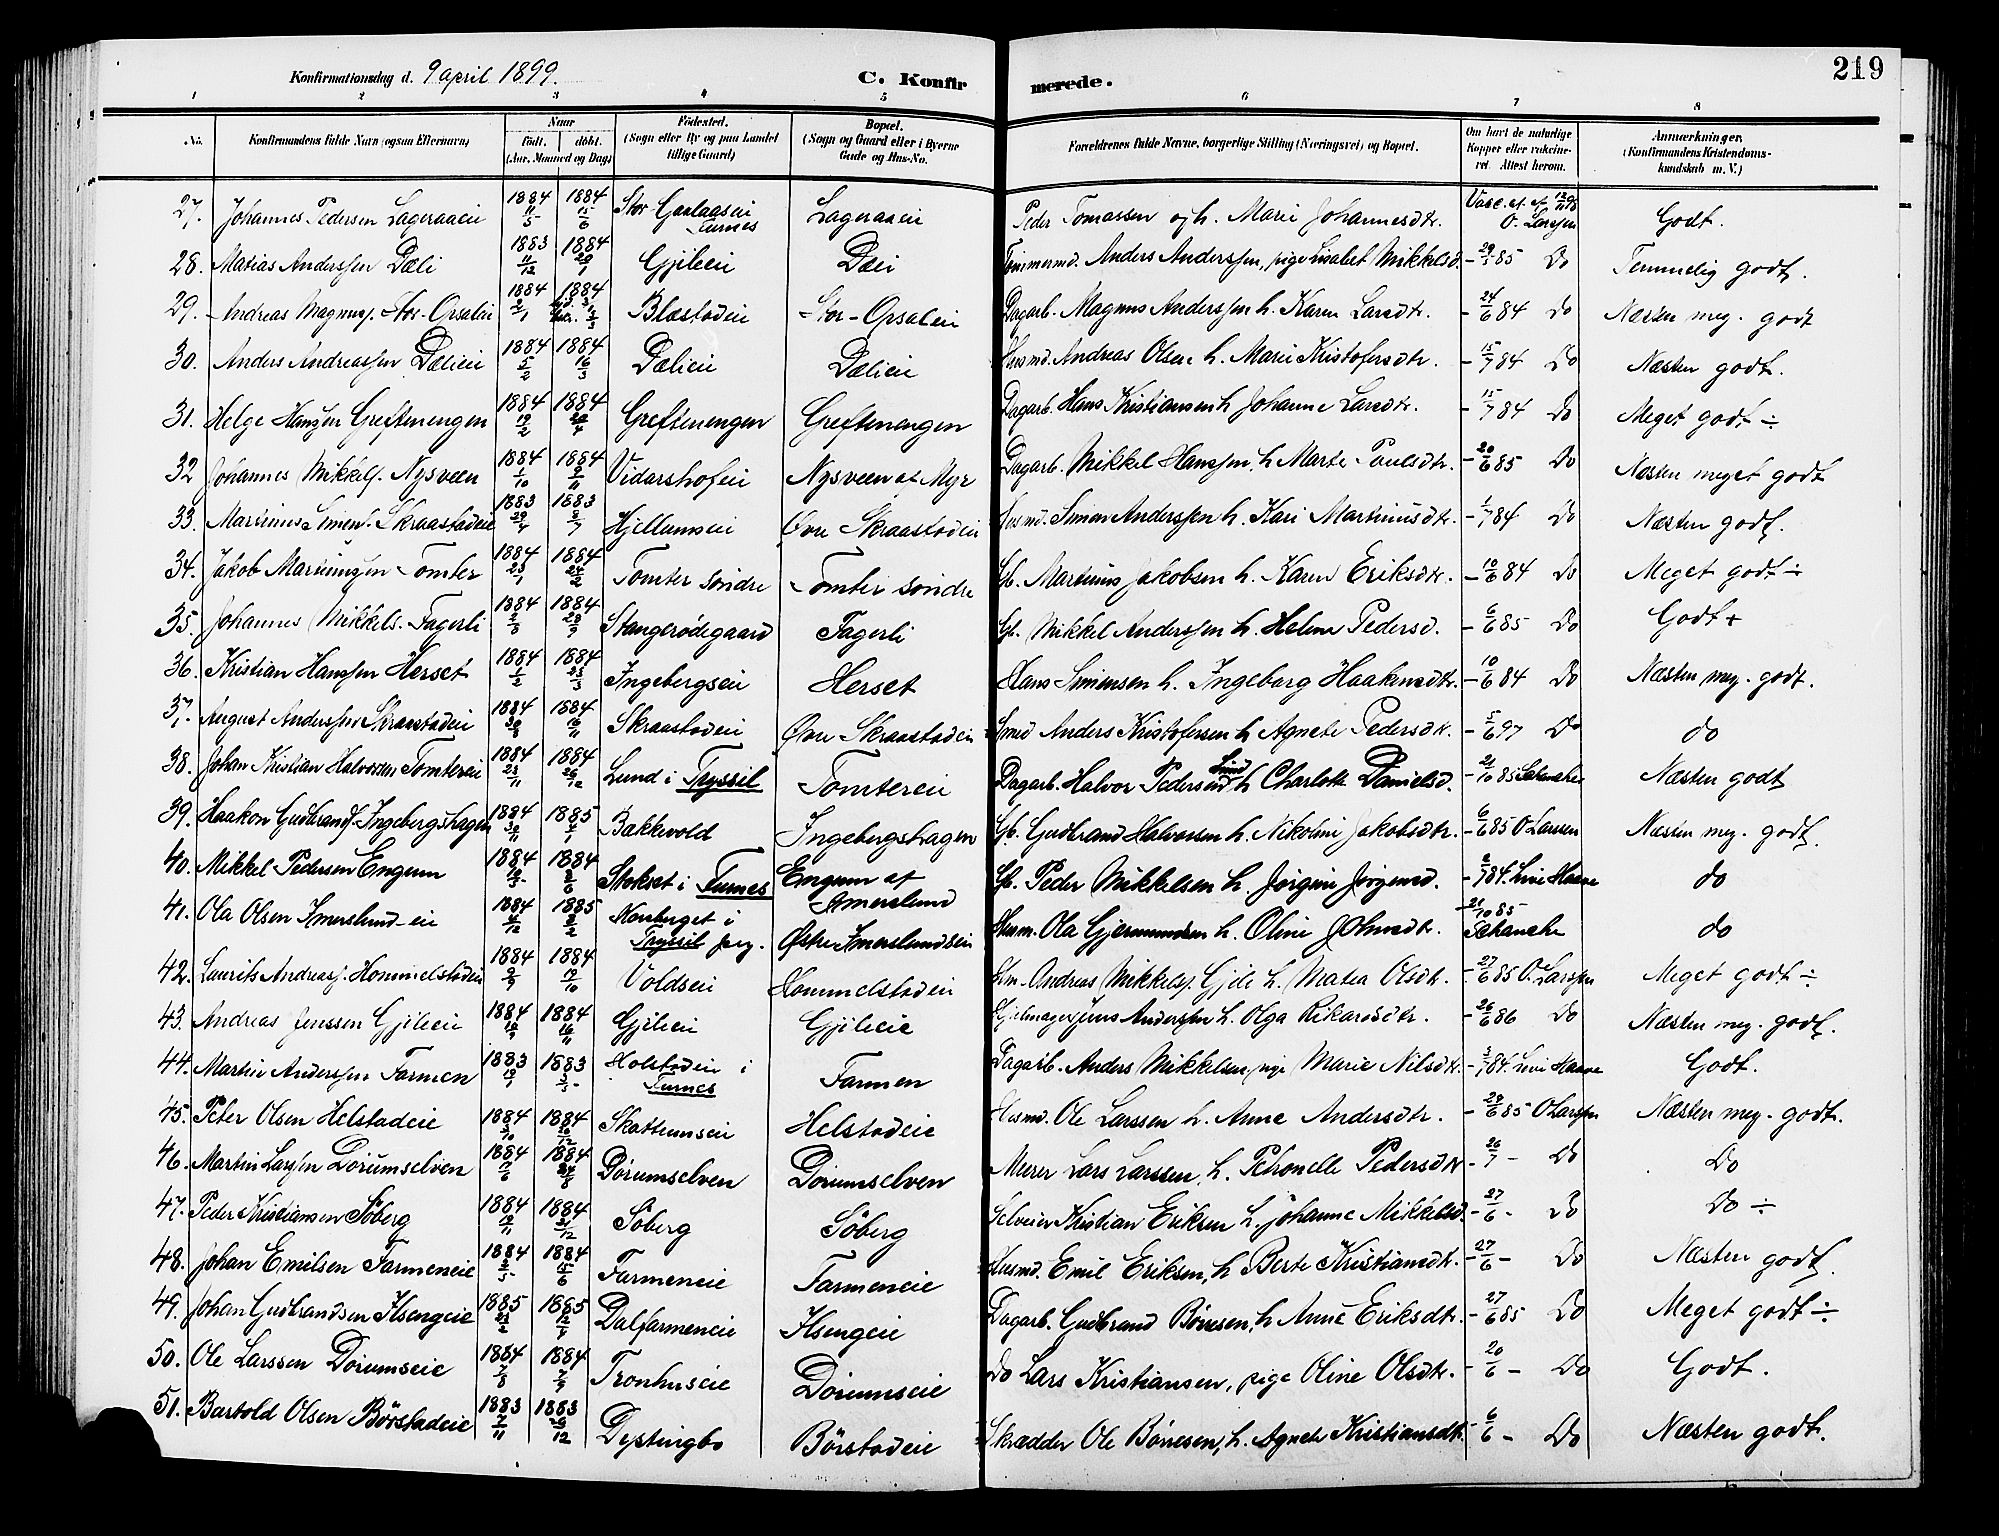 219
Konfirmationsdag d. 9 april 1899.
C. Konfirmerede.
1 2 3 4 5 6 7 8
No. Konfirmandens fulde Navn (ogsaa Efternavn) Naar födt. döbt. (Aar, Maaned og Dag) Födested. (Sogn eller By og paa Landet tillige Gaard) Bopæl. (Sogn og Gaard eller i Byerne Gade og Hus-No. Forældrenes fulde Navne, borgerlige Stilling (Næringsvei) og Bopæl. Om havt de naturlige Kopper eller vakcineret. Attest herom. Anmærkninger. (Konfirmandens Kristendomskundskab m. V.)
27. Johannes Pedersen Lageraaeie 1884 11/5 1884 15/6 Stor Gaalaaseie Furnes Lageraaeie Peder Tomassen og h. Marie Johannesdtr. O. Larssen Godt.
28. Matias Anderssen Dæli 1883 11/12 1884 20/1 Gjileeie Dæli Tömmermd. Anders Anderssen, pige Lisabet Mikkelsd. 85 Do Temmelig godt.
29. Andreas Magnuss. Stor-Opsaleie 1884 2/1 1884 Blæstadeie Stor-Opsaleie Dagarb. Magnus Anderssen h. Karen Larsdtr. - 24/6 84 Do Næsten meg. godt
30. Anders Andreassen Dælieie 1884 5/2 1884 16/3 Dælieie Dælieie Husmd. Andreas Olsen h. Marie Kristofersdtr. - 15/7 84 Do Næsten godt.
31. Helge Hanssen Greftenengen 1884 19/2 1884 20/4 Greftenengen Greftenengen Dagarb. Hans Kristiansen h Johanne Larsdtr. - 15/7 84 Do Meget godt ÷
32 Johannes Mikkels. Nysveen 1884 1/10 1884 9/11 Vidarshofeie Nysveen af Myr Dagarb. Mikkel Hanssen, h Marte Paulsdtr. - 20/6 85 Do Næsten meget godt
33. Martinus Simens. Skraastadeie 1883 29/4 1883 8/7 Hjellumseie Övre Skraastadeie Husmd. Simen Anderssen h. Kari Martinusdtr. - 1/7 84 Do Næsten godt.
34. Jakob Martinussen Tomter 1884 23/1 1884 24/2 Tomter söndre Tomter söndre Gb. Martinus Jakobsen h. Karen Eriksdtr. - 10/6 84 Do Meget godt ÷
35. Johannes Mikkels. Fagerli 1884 2/8 1884 28/9 Stangerödegaard Fagerli Gb. Mikkel Anderssen h. Helene Pedersd. - 6/6 85 Do Godt +
36. Kristian Hanssen Herset 1884 1/2 1884 23/3 Ingebergseie Herset Hans Simensen h. Ingeborg Haakensdtr. - 10/6 84 Do Næsten meg. godt.
37. August Anderssen Skraastadeie 1884 30/8 1884 16/11 Skraastadeie Övre Skraastadeie Smed Anders Kristofersen h Agnete Pedersdtr. - 5/6 97 Do do
38. Johan Kristian Halvorsen Tomtereie 1884 23/11 1884 26/12 Lund i Tryssil Tomtereie Dagarb. Halvor Pedersen Lund h Charlotte Danielsd. - 21/10 85 Næsten godt
39. Haakon Gudbrands. Ingebergshagen 1884 30/11 1885 Bakkevold Ingebergshagen Gb. Gudbrand Halvorsen h. Nikoline Jakobsdtr. - 6/6 85 O Larssen Næsten meg. godt.
40. Mikkel Pedersen Engum 1884 1884 Stokset i Furnes Engum af Imerslund Gb. Peder Mikkelsen h. Jörgine Jörgensd. 84. do
41. Ola Olsen Imerslund-eie 1884 1885 Norberget i Tryssil Östre Imerslundseie Husm. Ola Gjermundsen h. Oline Johnsdtr. - 21/10 85 do
42. Laurits Andreass. Hommelstadeie 1884 9/9 1884 19/10 Voldseie Hommelstadeie Andreas Mikkels. Gjile h. Matea Olsdtr. - 27/6 85 O. Larssen Meget godt ÷
43. Andreas Jenssen Gjileeie 1884 1884 16/11 Gjileeie Gjileeie Hjulmager Jens Anderssen h. Olga Rikardsdtr. - 26/6 86 Do Næsten meg. godt.
44. Martin Anderssen Farmen 1883 1883 Holstadeie i Furnes Farmen Dagarb. Anders Mikkelsen, pige Marie Nilsdtr. 84. Godt.
45. Peter Olsen Helstadeie 1884 1884 Skattumseie Helstadeie Husmd. Ole Larssen h. Anne Andersdtr. - 29/6 85 O Larssen Næsten meg. godt.
46. Martin Larssen Dörumselven 1884 17/6 1884 24/8 Dörumselven Dörumselven Murer Lars Larssen, h. Petronelle Pedersdtr - 26/7 - Do Do
47. Peder Kristiansen Söberg 1884 1884 21/12 Söberg Söberg Selveier Kristian Eriksen h. Johanne Mikkelsd. - 27/6 - Do Do ÷
48. Johan Emilsen Farmeneie 1884 2/5 1884 15/6 Farmeneie Farmeneie Husmd. Emil Eriksen, h Berte Kristiansdtr. - 27/6 - Do Næsten godt.
49. Johan Gudbrandsen Ilsengeie 1885 22/2 1885 12/4 Dalfarmeneie Ilsengeie Dagarb. Gudbrand Börresen, h Anne Eriksdtr. - 27/6 85 Do Meget godt ÷
50. Ole Larssen Dörumseie 1884 7/8 1884 7/9 Tronhuseie Dörumseie Do Lars Kristiansen, pige Oline Olsdtr. - 20/6 - Do Godt.
51. Bartold Olsen Börstadeie 1883 7/11 1883 Dystingbo Börstadeie Skrædder Ole Börresen, h. Agnete Kristiansdtr. - 6/6 - Do Næsten godt.